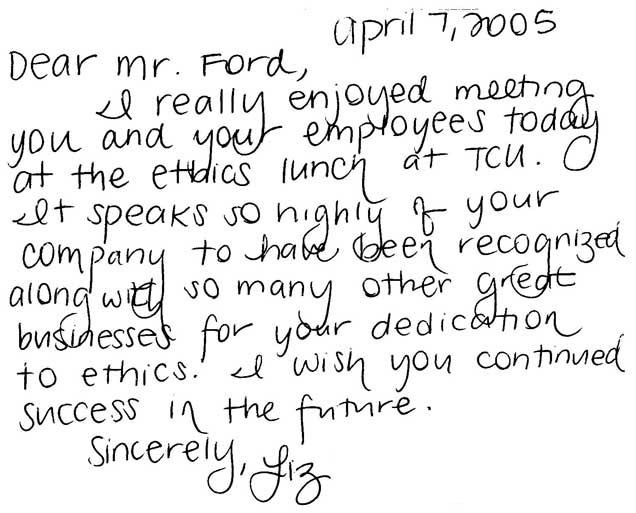 April 7, 2005
Dear Mr. Ford,
I really enjoyed meeting
you and your employees today
at the ethics lunch at TCU.
It speaks so highly of your
company to have been recognized
along with so many other great
businesses for your dedication
to ethics. I wish you continued
success in the future.
Sincerely, Liz